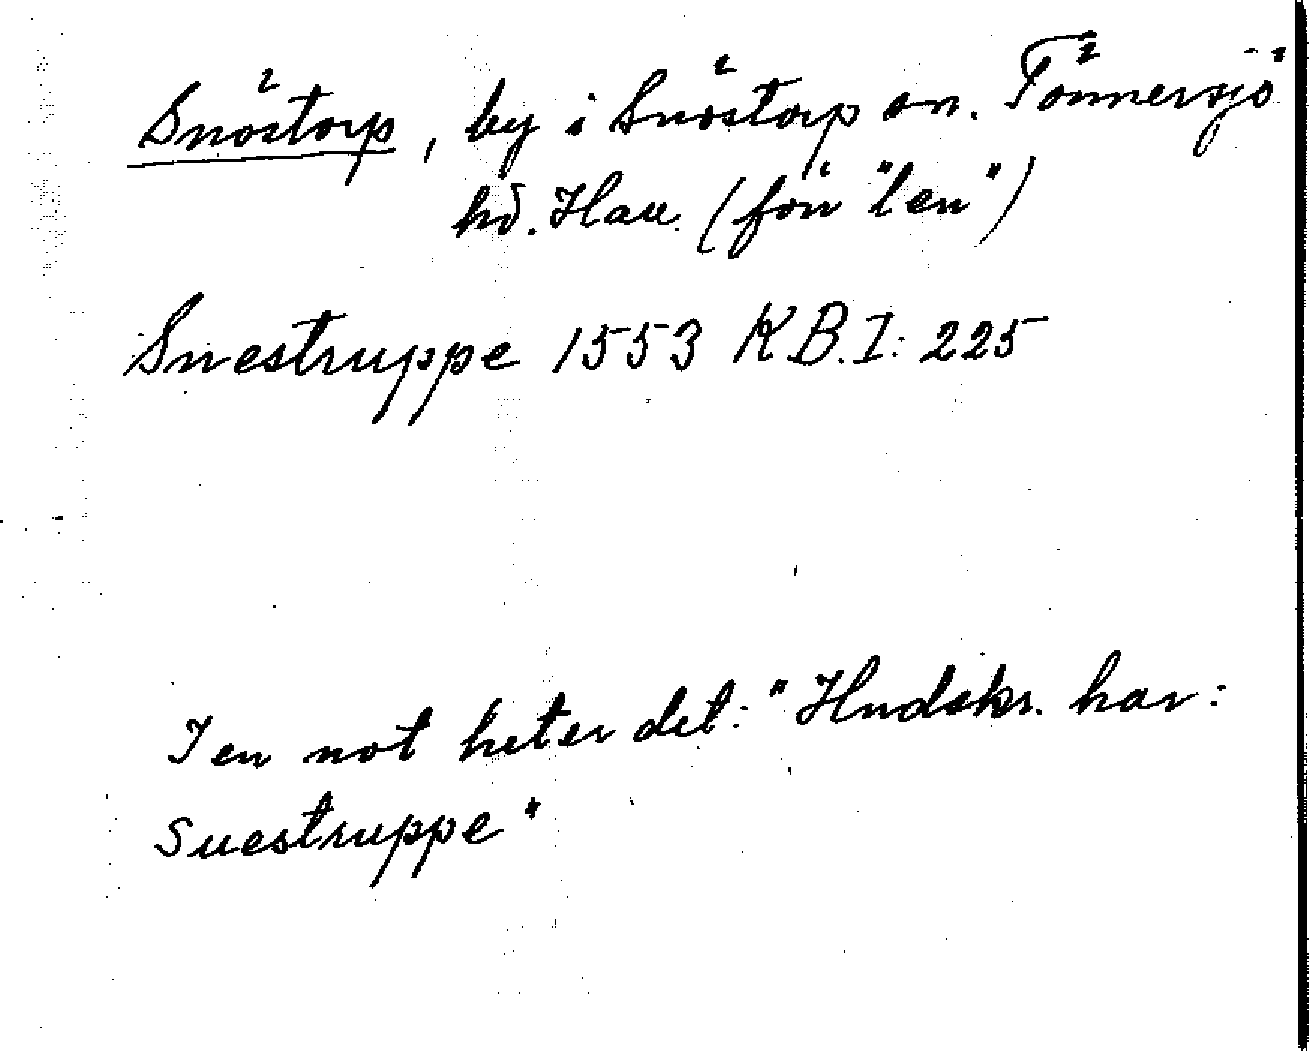 Snöstorp, by i Snöstorp sn. Tönnersjö
hd. Hall. (förr "län")
Snestruppe 1553 K.B.I: 225
I en not heter det: "Hndskr. har:
Suestruppe"